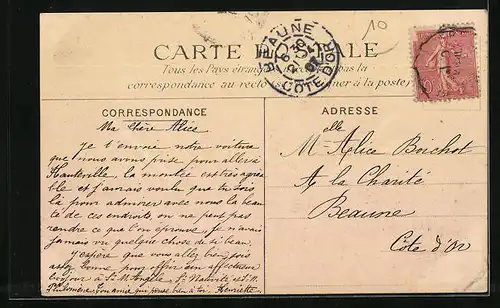 10
CARTE POSTALE
Tous les Pays étrangers pas la
correspondance au recto à la poste
BEAUNE
COTE D'OR
CORRESPONDANCE
Ma chère Alice
Je t'envoie notre voiture
que nous avons prise pour aller à
Hauteville, la montée est très agréa
ble et j'aurais voulu que tu sois
là pour admirer avec nous la beau
té de ces endroits, on ne peut pas
rendre ce que l'on éprouve, je n'avais
jamais vu quelque chose de si beau.
J'espère que vous allez bien
affectueux
bonjour à St Angèle,
Philomène, ton amie qui pense bien à toi, Henriette
ADRESSE
Melle Alice Boichot
A la Charité
Beaune
Côte d'Or